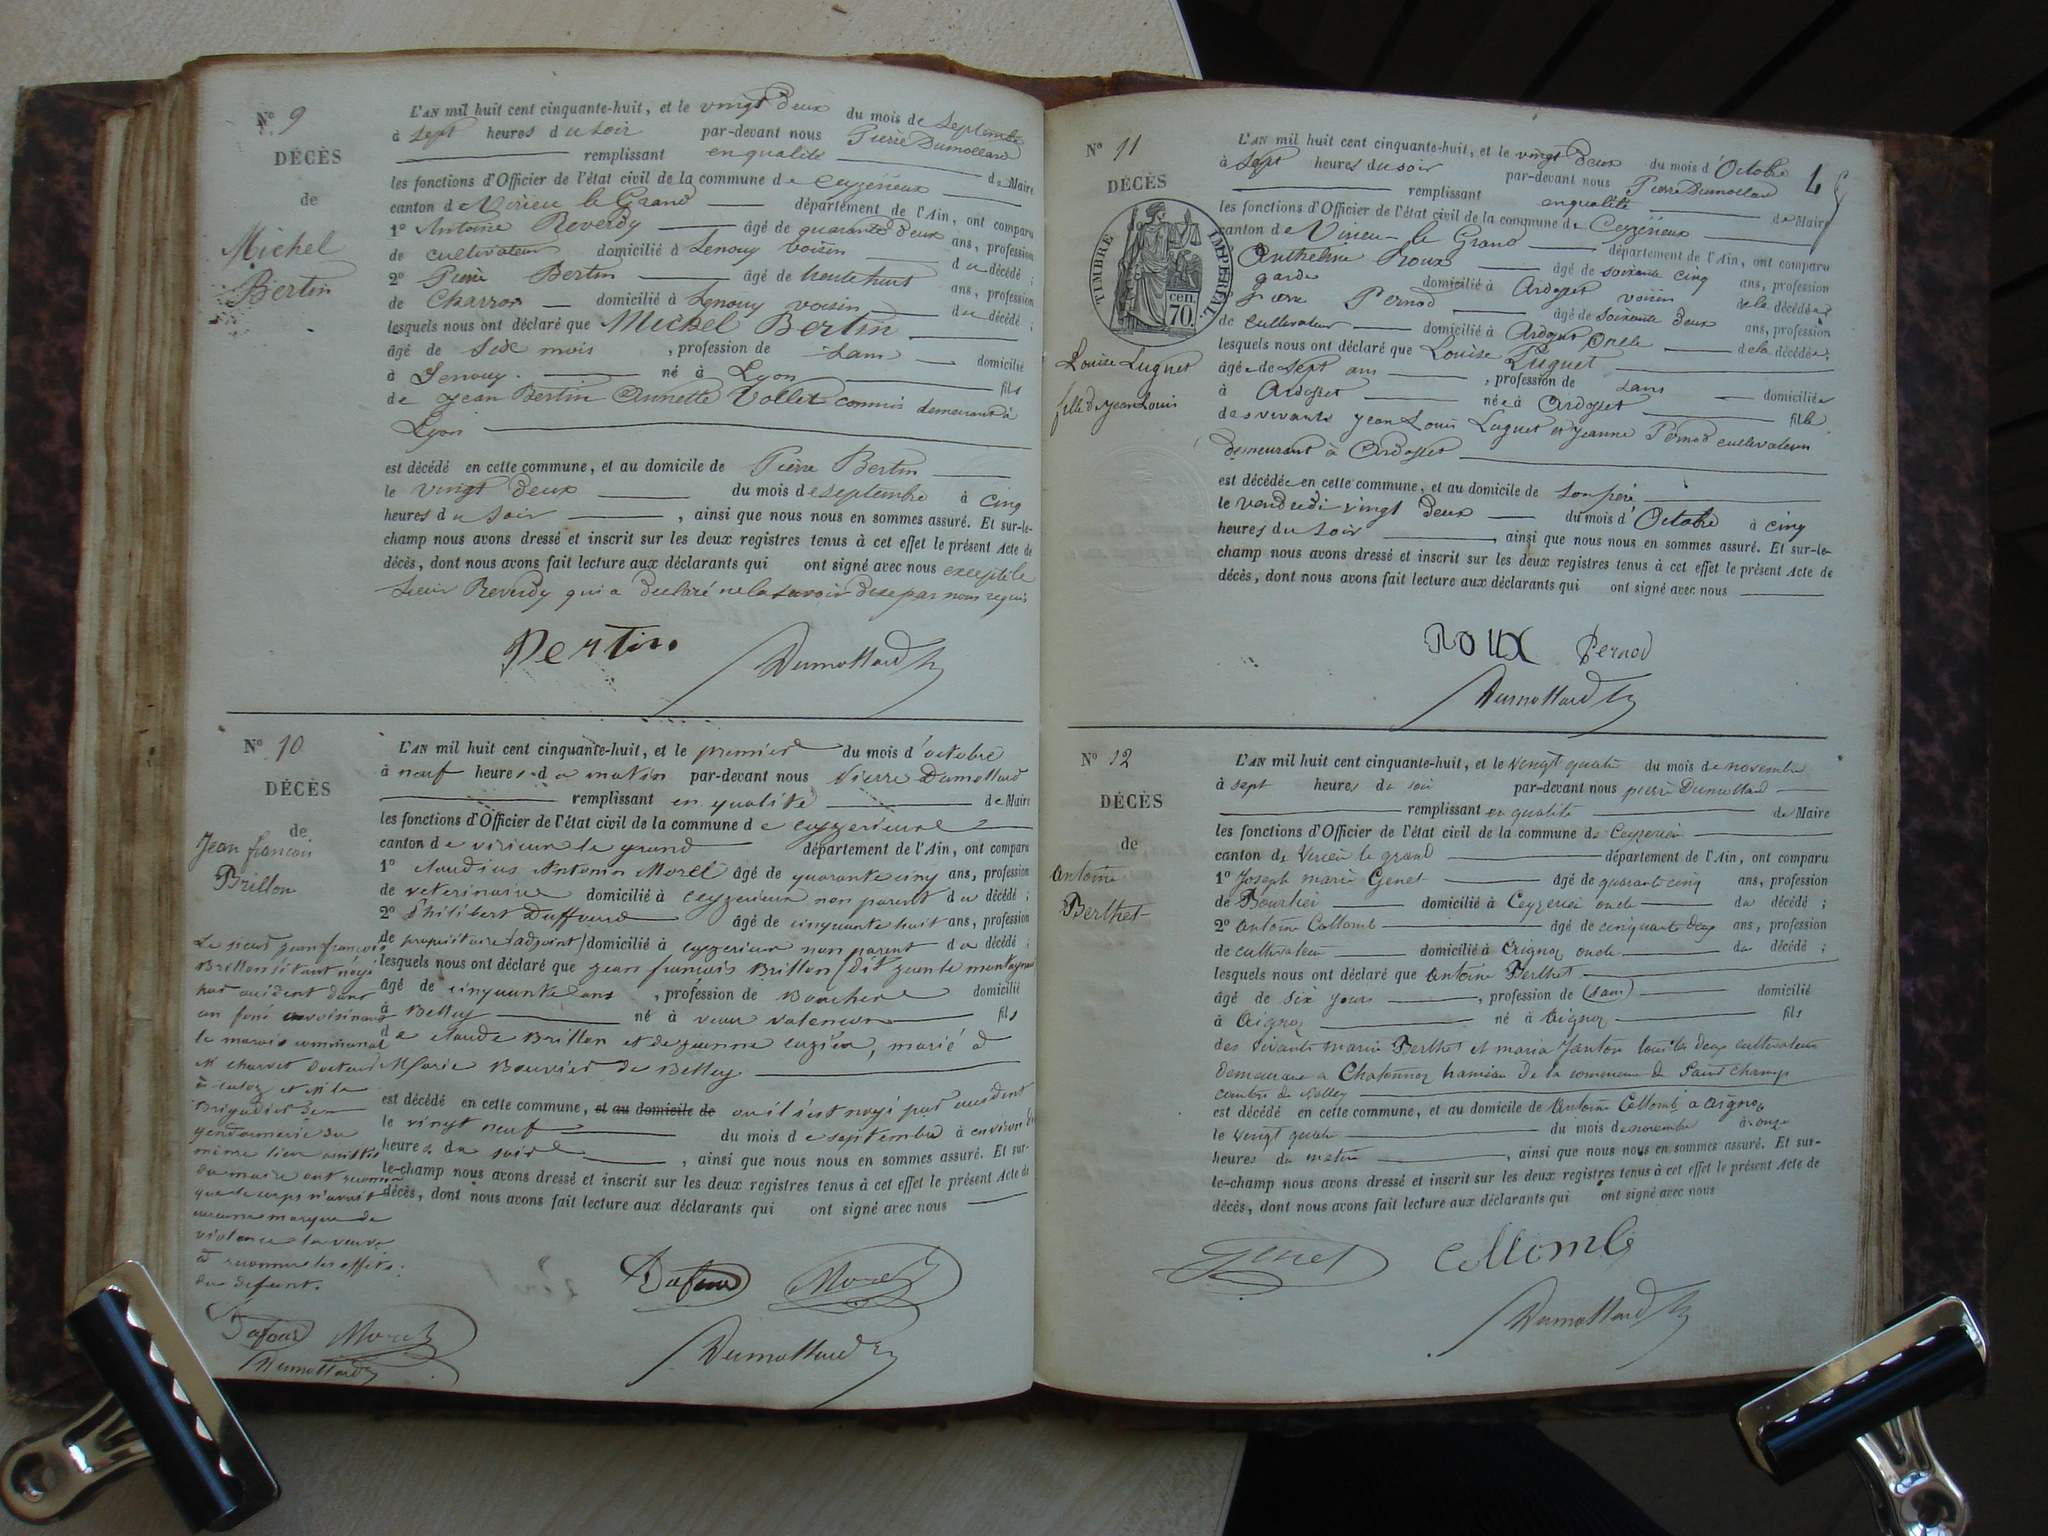 N° 9
DÉCÈS
de
Michel
Bertin
L'AN mil huit cent cinquante-huit, et le vingt deux du mois de septembre
à sept heures du soir par-devant nous Pierre Dumollard
remplissant en qualité de Maire
les fonctions d'Officier de l'état civil de la commune de Ceyzérieux
canton de Virieu le Grand département de l'Ain, ont comparu
1° Antoine Reverdy âgé de quarante deux ans, profession
de cultivateur domicilié à Senouy voisin du décédé ;
2° Pierre Bertin âgé de trente huit ans, profession
de Charron domicilié à Senouy voisin du décédé ;
lesquels nous ont déclaré que Michel Bertin
âgé de Six mois , profession de sans domicilié
à Senouy. né à Lyon fils
de Jean Bertin Annette Vollet commis demeurant à
Lyon
est décédé en cette commune, et au domicile de Pierre Bertin
le vingt deux du mois de septembre à cinq
heures du soir , ainsi que nous nous en sommes assuré. Et sur-le-
champ nous avons dressé et inscrit sur les deux registres tenus à cet effet le présent Acte de
décès, dont nous avons fait lecture aux déclarants qui ont signé avec nous excepté le
Sieur Reverdy qui a déclaré ne le savoir de ce par nous requis
Bertin Dumollard
N° 10
DÉCÈS
de
Jean françois
Brillon
L'AN mil huit cent cinquante-huit, et le premier du mois d'octobre
à neuf heures du matin par-devant nous Pierre Dumollard
remplissant en qualité de Maire
les fonctions d'Officier de l'état civil de la commune de ceyzerieux
canton de virieux le grand département de l'Ain, ont comparu
1° claudius Antonin Morel âgé de quarante cinq ans, profession
de veterinaire domicilié à ceyzerieux non parent du décédé ;
2° Philibert Duffourd âgé de cinquante huit ans, profession
de propriétaire (adjoint) domicilié à ceyzerieux non parent du décédé ;
lesquels nous ont déclaré que jean françois Brillon (dit
âgé de cinquante ans , profession de Boucher domicilié
à Belley né à fils
de claude Brillon et de jeanne , marié à
Marie Bouvier de Belley
est décédé en cette commune, et au domicile de où il s'est noyé par accident
le vingt neuf du mois de septembre à environ
heures du soir , ainsi que nous nous en sommes assuré. Et sur-
le-champ nous avons dressé et inscrit sur les deux registres tenus à cet effet le présent Acte de
décès, dont nous avons fait lecture aux déclarants qui ont signé avec nous
Le sieur jean françois
Brillon s'étant noyé
par accident dans
un fossé avoisinant
le marais communal
Mr charvet docteur
à culoz et Mr le
Brigadier de
gendarmerie du
même lieu assistés
du maire ont reconnu
que le corps n'avait
aucune marque de
violence la veuve
a reconnu les effets
du defunt.
Dufour Morel
Dumollard
Dufour Morel
Dumollard
N° 11
DÉCÈS
TIMBRE IMPÉRIAL.
cen.
70.
Louise Luguet
fille de Jean Louis
L'AN mil huit cent cinquante-huit, et le vingt deux du mois d'Octobre
à sept heures du soir par-devant nous Pierre Dumollard
remplissant en qualité de Maire
les fonctions d'Officier de l'état civil de la commune de Ceyzérieux
canton de Virieu le Grand département de l'Ain, ont comparu
Anthelme Roux âgé de soixante cinq ans, profession
garde domicilié à Ardosset voisin de la décédée
Pierre Pernod âgé de soixante deux ans, profession
de cultivateur domicilié à Ardosset oncle de la décédée ;
lesquels nous ont déclaré que Louise Luguet
âgée de sept ans , profession de sans domiciliée
à Ardosset née à Ardosset fille
des vivants Jean Louis Luguet et Jeanne Pernod cultivateurs
demeurant à Ardosset
est décédée en cette commune, et au domicile de son père
le vendredi vingt deux du mois d'Octobre à cinq
heures du soir , ainsi que nous nous en sommes assuré. Et sur-le-
champ nous avons dressé et inscrit sur les deux registres tenus à cet effet le présent Acte de
décès, dont nous avons fait lecture aux déclarants qui ont signé avec nous
ROUX Pernod
Dumollard
N° 12
DÉCÈS
de
Antoine
Berthet
L'AN mil huit cent cinquante-huit, et le vingt quatre du mois de novembre
à sept heures du soir par-devant nous pierre Dumollard
remplissant en qualité de Maire
les fonctions d'Officier de l'état civil de la commune de Ceyzerieu
canton de Virieu le grand département de l'Ain, ont comparu
1° Joseph marie Genet âgé de quarante cinq ans, profession
de Bourlier domicilié à Ceyzerieu oncle du décédé ;
2° Antoine Collomb âgé de cinquante deux ans, profession
de cultivateur domicilié à Aignoz oncle du décédé ;
lesquels nous ont déclaré que Antoine Berthet
âgé de six jours , profession de (sans) domicilié
à Aignoz né à Aignoz fils
des vivants marin Berthet et maria Janton tous les deux cultivateurs
demeurant a Chatonnoz hameau de la commune de Saint champ
canton de Belley
est décédé en cette commune, et au domicile de Antoine Collomb a Aignoz
le vingt quatre du mois de novembre à onze
heures du matin , ainsi que nous nous en sommes assuré. Et sur-
le-champ nous avons dressé et inscrit sur les deux registres tenus à cet effet le présent Acte de
décès, dont nous avons fait lecture aux déclarants qui ont signé avec nous
Genet Collomb
Dumollard